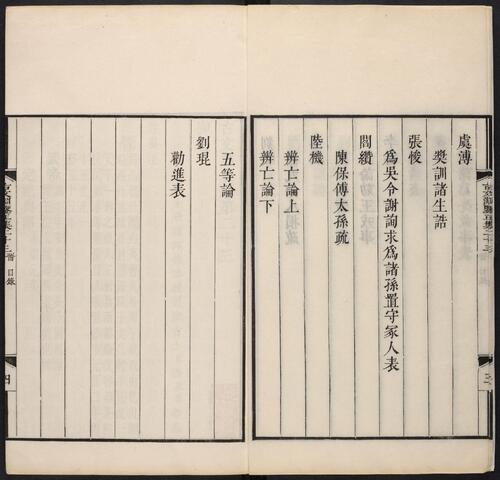 虞溥
獎訓諸生誥
張悛
為吳令謝詢求為諸孫置守冢人表
閻纘
陳保傅太孫疏
陸機
辨亡論上
辨亡論下
五等論
劉琨
勸進表
目錄
四